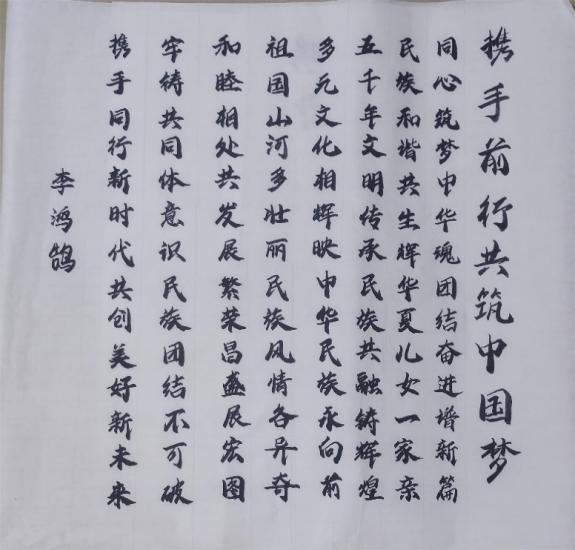 携手前行共筑中国梦
同心筑梦中华魂团结奋进谱新篇
民族和谐共生辉华夏儿女一家亲
五千年文明传承民族共融铸辉煌
多元文化相辉映中华民族永向前
祖国山河多壮丽民族风情各异奇
和睦相处共发展繁荣昌盛展宏图
牢铸共同体意识民族团结不可破
携手同行新时代共创美好新未来
李鸿鹄